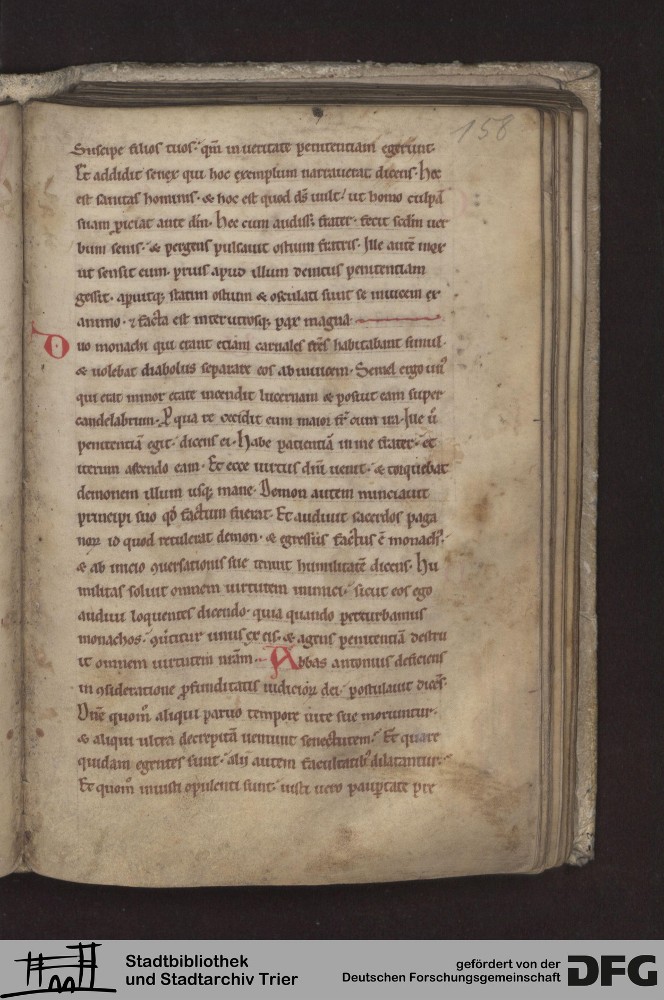 158
Suscipe filios tuos. qm̄ in ueritate penitentiam egerunt.
Et addidit senex qui hoc exemplum narrauerat dicens. Hec
est sanitas hominis. & hoc est quod ds̄ uult. ut homo culpā
suam ꝓiciat ante dm̄. Hec cum audiss; frater. fecit scdm̄ uer
bum senis. & pergens pulsauit ostium fratris. Ille autē mox
ut sensit eum. prius apud illum deintus penitentiam
gessit. aꝑuitqꝫ statim ostium & osculati sunt se inuicem ex
animo. & facta est inter utrosqꝫ pax magna
Duo monachi qui erant etiam carnales frēs habitabant simul.
& uolebat diabolus separare eos ab inuicem. Semel ergo un9
qui erat minor etate incendit lucernam & posuit eam super
candelabrum. qua re cecidit eum maior fr̄ cum ira. Ille ū
penitentiā egit. dicens ei. Habe patientiā in me frater. et
iterum accendo eam. Et ecce uirtus dn̄i uenit. & torquebat
demonem illum usqꝫ mane. Demon autem nunciauit
principi suo qd̄ factum fuerat. Et audiuit sacerdos paga
noꝝ id quod referebat demon. & egressus factus ē monachꝰ.
& ab inicio ꝯuersationis sue tenuit humilitatē dicens. Hu
militas soluit omnem uirtutem inimici. sicut eos ego
audiui loquentes dicendo. quia quando perturbamus
monachos. ꝯuertitur unus ex eis. & agens penitentiā destru
it omnem uirtutem nr̄am. Abbas antonius deficiens
in ꝯsideratione ꝓfunditatis iudicioꝝ dei. postulauit dicēs.
Dn̄e quom̄ aliqui paruo tempore uite sue moriuntur.
& aliqui ultra decrepitā ueniunt senectutem. Et quare
quidam egentes sunt. alij autem facultatibꝰ dilatantur.
Et quom̄ iniusti opulenti sunt. iusti uero pauꝑtate pre
Stadtbibliothek
und Stadtarchiv Trier
gefördert von der
Deutschen Forschungsgemeinschaft
DFG